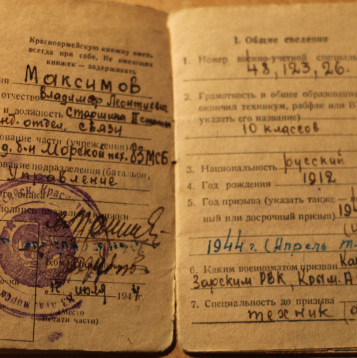 Красноармейскую книжку иметь
всегда при себе. Не имеющих
книжек — задерживать
Максимов
отчество Владимир Леонтьевич
и должность Старшина II
отдел. связи
часть (учреждение)
Морской 83 МСБ
подразделения (батальон,
Управление
Подпись
15 июля 1944
(Место
печати части)
I. Общие сведения
1. Номер военно-учетной специальн.
48, 123, 26.
2. Грамотность и общее образование
окончил техникум, рабфак или В
указать его название)
10 классов
3. Национальность русский
4. Год рождения 1912
5. Год призыва (указать также,
ный или досрочный призыв)
1944 г. (Апрель
6. Каким военкоматом призван
Зарским РВК, Крым. А
7. Специальность до призыва
техник